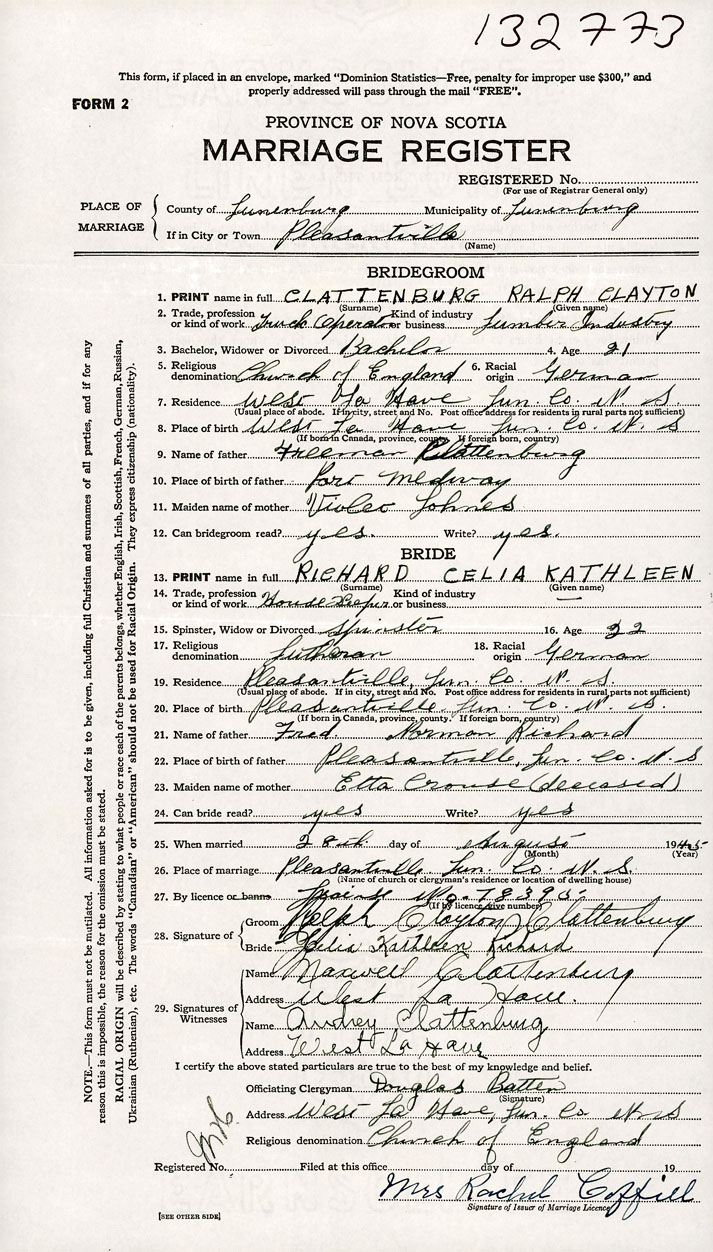 132773
This form, if placed in an envelope, marked "Dominion Statistics—Free, penalty for improper use $300," and
properly addressed will pass through the mail "FREE".
FORM 2
PROVINCE OF NOVA SCOTIA
MARRIAGE REGISTER
REGISTERED No.
(For use of Registrar General only)
PLACE OF MARRIAGE
County of Lunenburg Municipality of Lunenburg
If in City or Town Pleasantville
(Name)
BRIDEGROOM
1. PRINT name in full CLATTENBURG RALPH CLAYTON
(Surname) (Given name)
2. Trade, profession or kind of work Truck Operator Kind of industry or business Lumber Industry
3. Bachelor, Widower or Divorced Bachelor 4. Age 21
5. Religious denomination Church of England 6. Racial origin German
7. Residence West La Have Lun. Co. N. S
(Usual place of abode. If in city, street and No. Post office address for residents in rural parts not sufficient)
8. Place of birth West La Have Lun. Co. N. S
(If born in Canada, province, county. If foreign born, country)
9. Name of father Freeman Clattenburg
10. Place of birth of father Port Medway
11. Maiden name of mother Violet
12. Can bridegroom read? yes. Write? yes.
BRIDE
13. PRINT name in full RICHARD CELIA KATHLEEN
(Surname) (Given name)
14. Trade, profession or kind of work House Keeper Kind of industry or business —
15. Spinster, Widow or Divorced Spinster 16. Age 22
17. Religious denomination Lutheran 18. Racial origin German
19. Residence Pleasantville, Lun. Co. N. S.
(Usual place of abode. If in city, street and No. Post office address for residents in rural parts not sufficient)
20. Place of birth Pleasantville Lun. Co. N. S.
(If born in Canada, province, county. If foreign born, country)
21. Name of father Fred. Norman Richard
22. Place of birth of father Pleasantville, Lun. Co. N. S
23. Maiden name of mother Etta Crouse (deceased)
24. Can bride read? yes Write? yes
25. When married 28th. day of August 1945
(Month) (Year)
26. Place of marriage Pleasantville Lun. Co. N. S.
(Name of church or clergyman's residence or location of dwelling house)
27. By licence or banns No. 78395
(If by licence, give number)
28. Signature of
Groom Ralph Clayton Clattenburg
Bride Celia Kathleen Richard
29. Signatures of Witnesses
Name Maxwell Clattenburg
Address West La Have.
Name Audrey Clattenburg
Address West La Have
I certify the above stated particulars are true to the best of my knowledge and belief.
Officiating Clergyman Douglas Batten
(Signature)
Address West La Have, Lun. Co N. S
Religious denomination Church of England
Registered No. Filed at this office day of 19
Mrs Rachel Coffill
Signature of Issuer of Marriage Licence
[SEE OTHER SIDE]
NOTE.—This form must not be mutilated. All information asked for is to be given, including full Christian and surnames of all parties, and if for any
reason this is impossible, the reason for the omission must be stated.
RACIAL ORIGIN will be described by stating to what people or race each of the parents belongs, whether English, Irish, Scottish, French, German, Russian,
Ukrainian (Ruthenian), etc. The words "Canadian" or "American" should not be used for Racial Origin. They express citizenship (nationality).